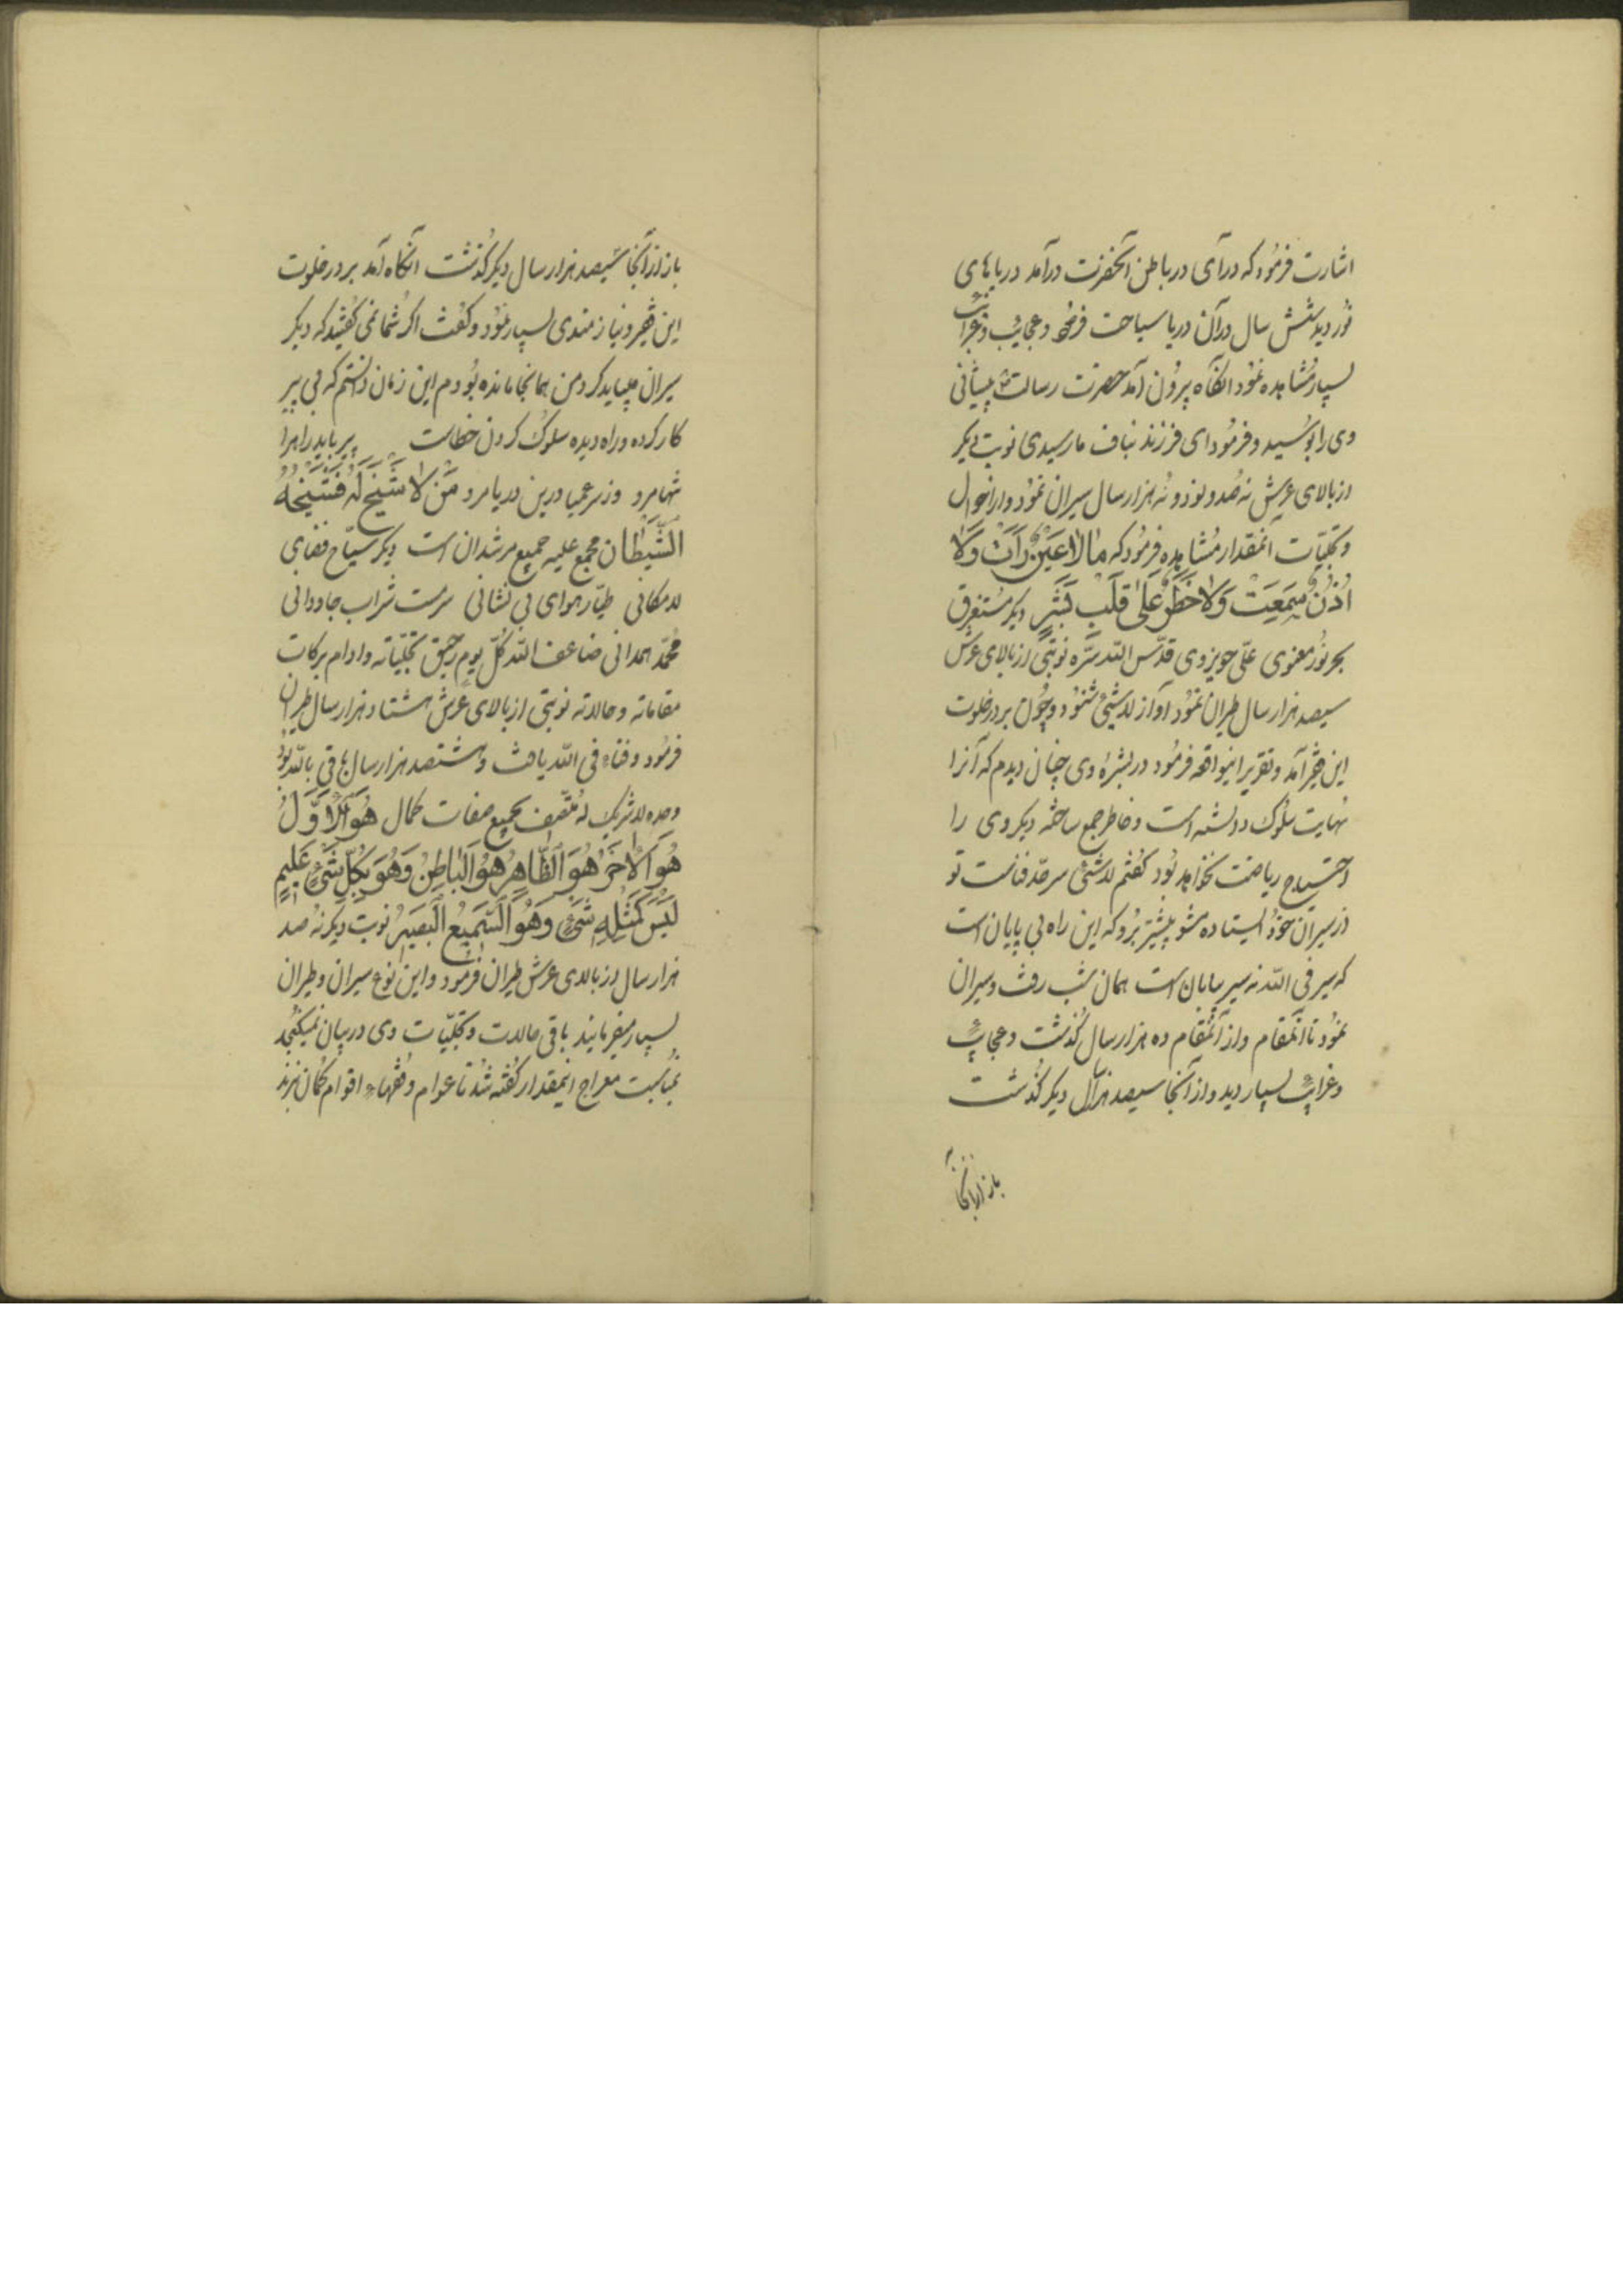 اشارت فرمود که درآی در باطن آنحضرت درآمد دریاهای
نور دید شش سال در آن دریا سیاحت فرمود و عجایب و غرائب
بسیار مشاهده نمود آنگاه بیرون آمد حضرت رسالت پیشانی
وی را بوسید و فرمود ای فرزند بناف ما رسیدی نوبت دیگر
از بالای عرش نه صد و نود و نه هزار سال سیران نمود و از احوال
و تجلیّات آنمقدار مشاهده فرمود که مَا لَا عَیْنٌ رَأَتْ وَلَا
اُذُنٌ سَمِعَتْ وَلَا خَطَرَ عَلَی قَلْبِ بَشَرٍ دیگر مستغرق
بحر نور معنوی علی جویزوی قدّس الله سرّه نوبتی از بالای عرش
سیصد هزار سال طیران نمود آواز لاشیئ شنود و چون بر در خلوت
این فقیر آمد و تقریر اینواقعه فرمود در بشرهٔ وی چنان دیدم که آنرا
نهایت سلوک دانسته است و خاطر جمع ساخته دیگر وی را
احتیاج ریاضت نخواهد بود گفتم لاشئ سرحدّ فناست تو
در سیران خود ایستاده مشو پیشتر برو که این راه بی پایان است
که سیر فی الله نه سیر بیابان است همان شب رفت و سیران
نمود تا آنمقام و از آنمقام ده هزار سال گذشت و عجایب
و غرایب بسیار دید و از آنجا سیصد هزار سال دیگر گذشت
باز از آنجا
باز از آنجا سیصد هزار سال دیگر گذشت آنگاه آمد بر در خلوت
این فقیر و نیازمندی بسیار نمود و گفت اگر شما نمی گفتید که دیگر
سیران میباید کرد من همانجا مانده بودم این زمان دانستم که بی پیر
کار کرده و راه دیده سلوک کردن خطاست پیر باید راه را
تنها مرو وز سر عمیا درین دریا مرو مَنْ لَا شَیْخَ لَهُ فَشَیْخُهُ
الشَّیْطَان مجمع علیه جمیع مرشدان است دیگر سیّاح فضای
لامکانی طیّار هوای بی نشانی سرمست شراب جاودانی
محمّد همدانی ضاعف الله کلّ یوم رحیق تجلیّاته و ادام برکات
مقاماته و حالاته نوبتی از بالای عرش هشتاد هزار سال طیران
فرمود و فناء فی الله یافت و هشتصد هزار سال باقی بالله بود
وحده لا شریک له متّصف بجمیع صفات کمال هُوَ الْاَوَّلُ
هُوَ الْآخِرُ هُوَ الظَّاهِرُ هُوَ الْبَاطِنُ وَهُوَ بِکُلِّ شَیْءٍ عَلِیمٌ
لَیْسَ کَمِثْلِهِ شَیْءٌ وَهُوَ السَّمِیعُ الْبَصِیرُ نوبت دیگر نه صد
هزار سال از بالای عرش طیران فرمود و این نوع سیران و طیران
بسیار میفرمایند باقی حالات و تجلیّات وی در بیان نمیگنجد
بمناسبت معراج اینمقدار گفته شد تا عوام و فقهاء اقوام گمان نبرند